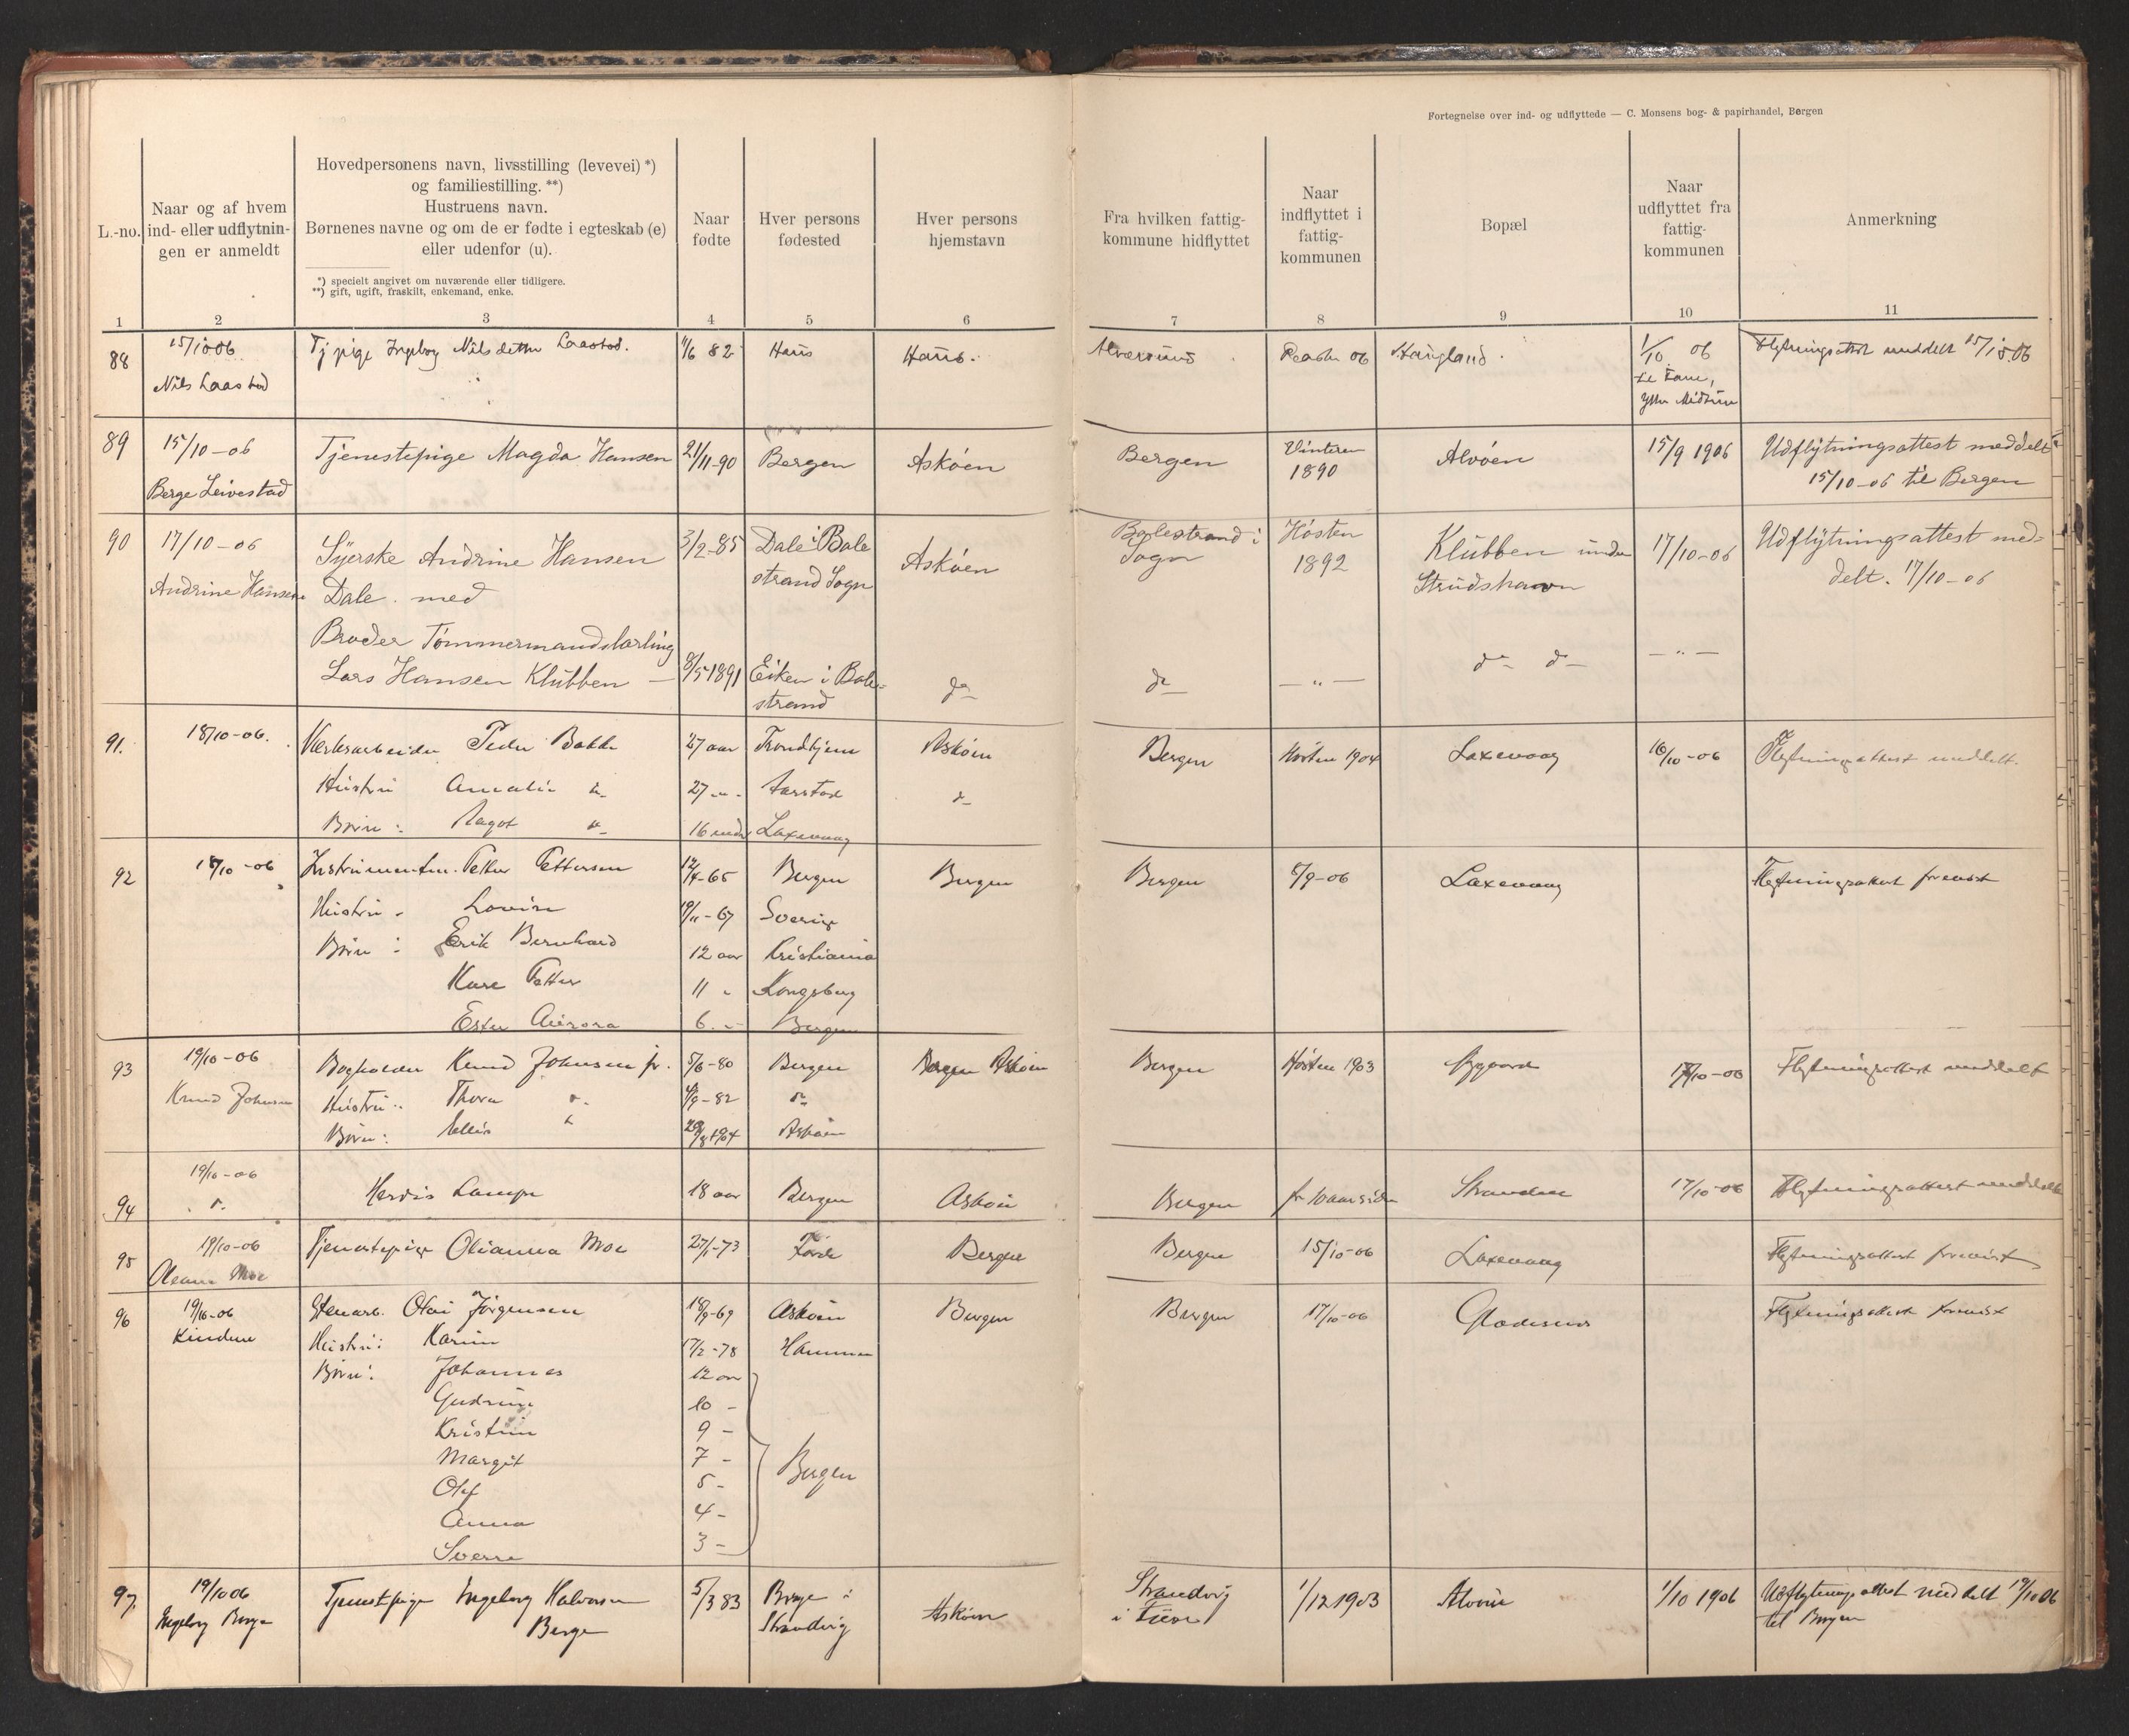 Fortegnelse over ind- og udflyttede — C. Monsens bog- & papirhandel, Bergen
L.-no.
Naar og af hvem
ind- eller udflytnin-
gen er anmeldt
Hovedpersonens navn, livsstilling (levevei) *)
og familiestilling. **)
Hustruens navn.
Børnenes navne og om de er fødte i egteskab (e)
eller udenfor (u).
*) specielt angivet om nuværende eller tidligere.
**) gift, ugift, fraskilt, enkemand, enke.
Naar
fødte
Hver persons
fødested
Hver persons
hjemstavn
Fra hvilken fattig-
kommune hidflyttet
Naar
indflyttet i
fattig-
kommunen
Bopæl
Naar
udflyttet fra
fattig-
kommunen
Anmerkning
1 2 3 4 5 6 7 8 9 10 11
88 15/10 06 Tj pige Ingeborg Nilsdatter Laastad. 82 Haus Haus. Alversund 06 Haugland. 1/10 06 meddelt 15/10.06
Nils Laastad
til Fane,
89 15/10-06 Tjenestepige Magda Hansen 21/11-90 Bergen Askøen Bergen Vinteren 1890 Alvøen 15/9 1906 Udflytningsattest meddelt
Berge Leivestad
15/10-06 til Bergen
90 17/10-06 Syerske Andrine Hansen 3/2-85 Dale i Bale Askøen Balestrand i Høsten Klubben under 17/10-06 Udflytningsattest med-
Andrine Hansen Dale med strand Sogn Sogn 1892 Strudshavn delt. 17/10-06
Broder Tømmermandslærling
Lars Hansen Klubben — 8/5 1891 Eiken i Bale- do do — " — do do — " —
strand
91. 18/10-06. Verksarbeider Peder Bakke 27 aar Trondhjem Askøen Bergen Høsten 1904 Laxevaag 16/10-06 Flytningsattest meddelt.
Hustru Amalie " 27 " Aarstad do
Børn: Ragot " 16 mdr Laxevaag
92 18/10-06 Instrumentm. Petter Pettersen 12/4-65 Bergen Bergen Bergen 8/9-06 Laxevaag Flytningsattest forevist
Hustru - Lovise 19/11-67 Sverige
Børn: Erik Bernhard 12 aar Kristiania
Kare Petter 11 - Kongsberg
Ester Aurora 6. - Bergen
93 19/10-06 Bogholder Knud Johnsen jr. 5/6-80 Bergen Bergen Askøen Bergen Høsten 1903 Nygaard 17/10-06 Flytningsattest meddelt
Knud Johnsen Hustru: Thora do 4/9-82 do
Børn: Askøen
94 19/10-06 Herdis Lampe 18 aar Bergen Askøen Bergen for 10 aar siden Stranden 17/10-06 Flytningsattest meddelt
do
95 19/10-06 Tjenestepige Olianna Moe 27/1-73 Førde Bergen Bergen 15/10-06 Laxevaag Flytningsattest forevist
Oleana Moe
96 19/10-06 Stenarb. Olai Jørgensen 18/9-69 Askøen Bergen Bergen 17/10-06 Flytningsattest forevist
Hustru: Karin 17/2-78 Hammer
Børn: Johannes 12 aar
Gudrun 10 -
Kristin 9 -
Margit 7 -
Olaf 5 -
Bergen
Anna 4 -
Sverre 3 -
97. 19/10 06 Tjenestpige Ingeborg Halvorsen 5/3 83 Berge i Askøen Strandvig 1/12 1903 Alvøen 1/10 1906 Udflytningsattest meddelt 19/10 06
Ingeborg Berge Berge Strandvig i Fuse til Bergen